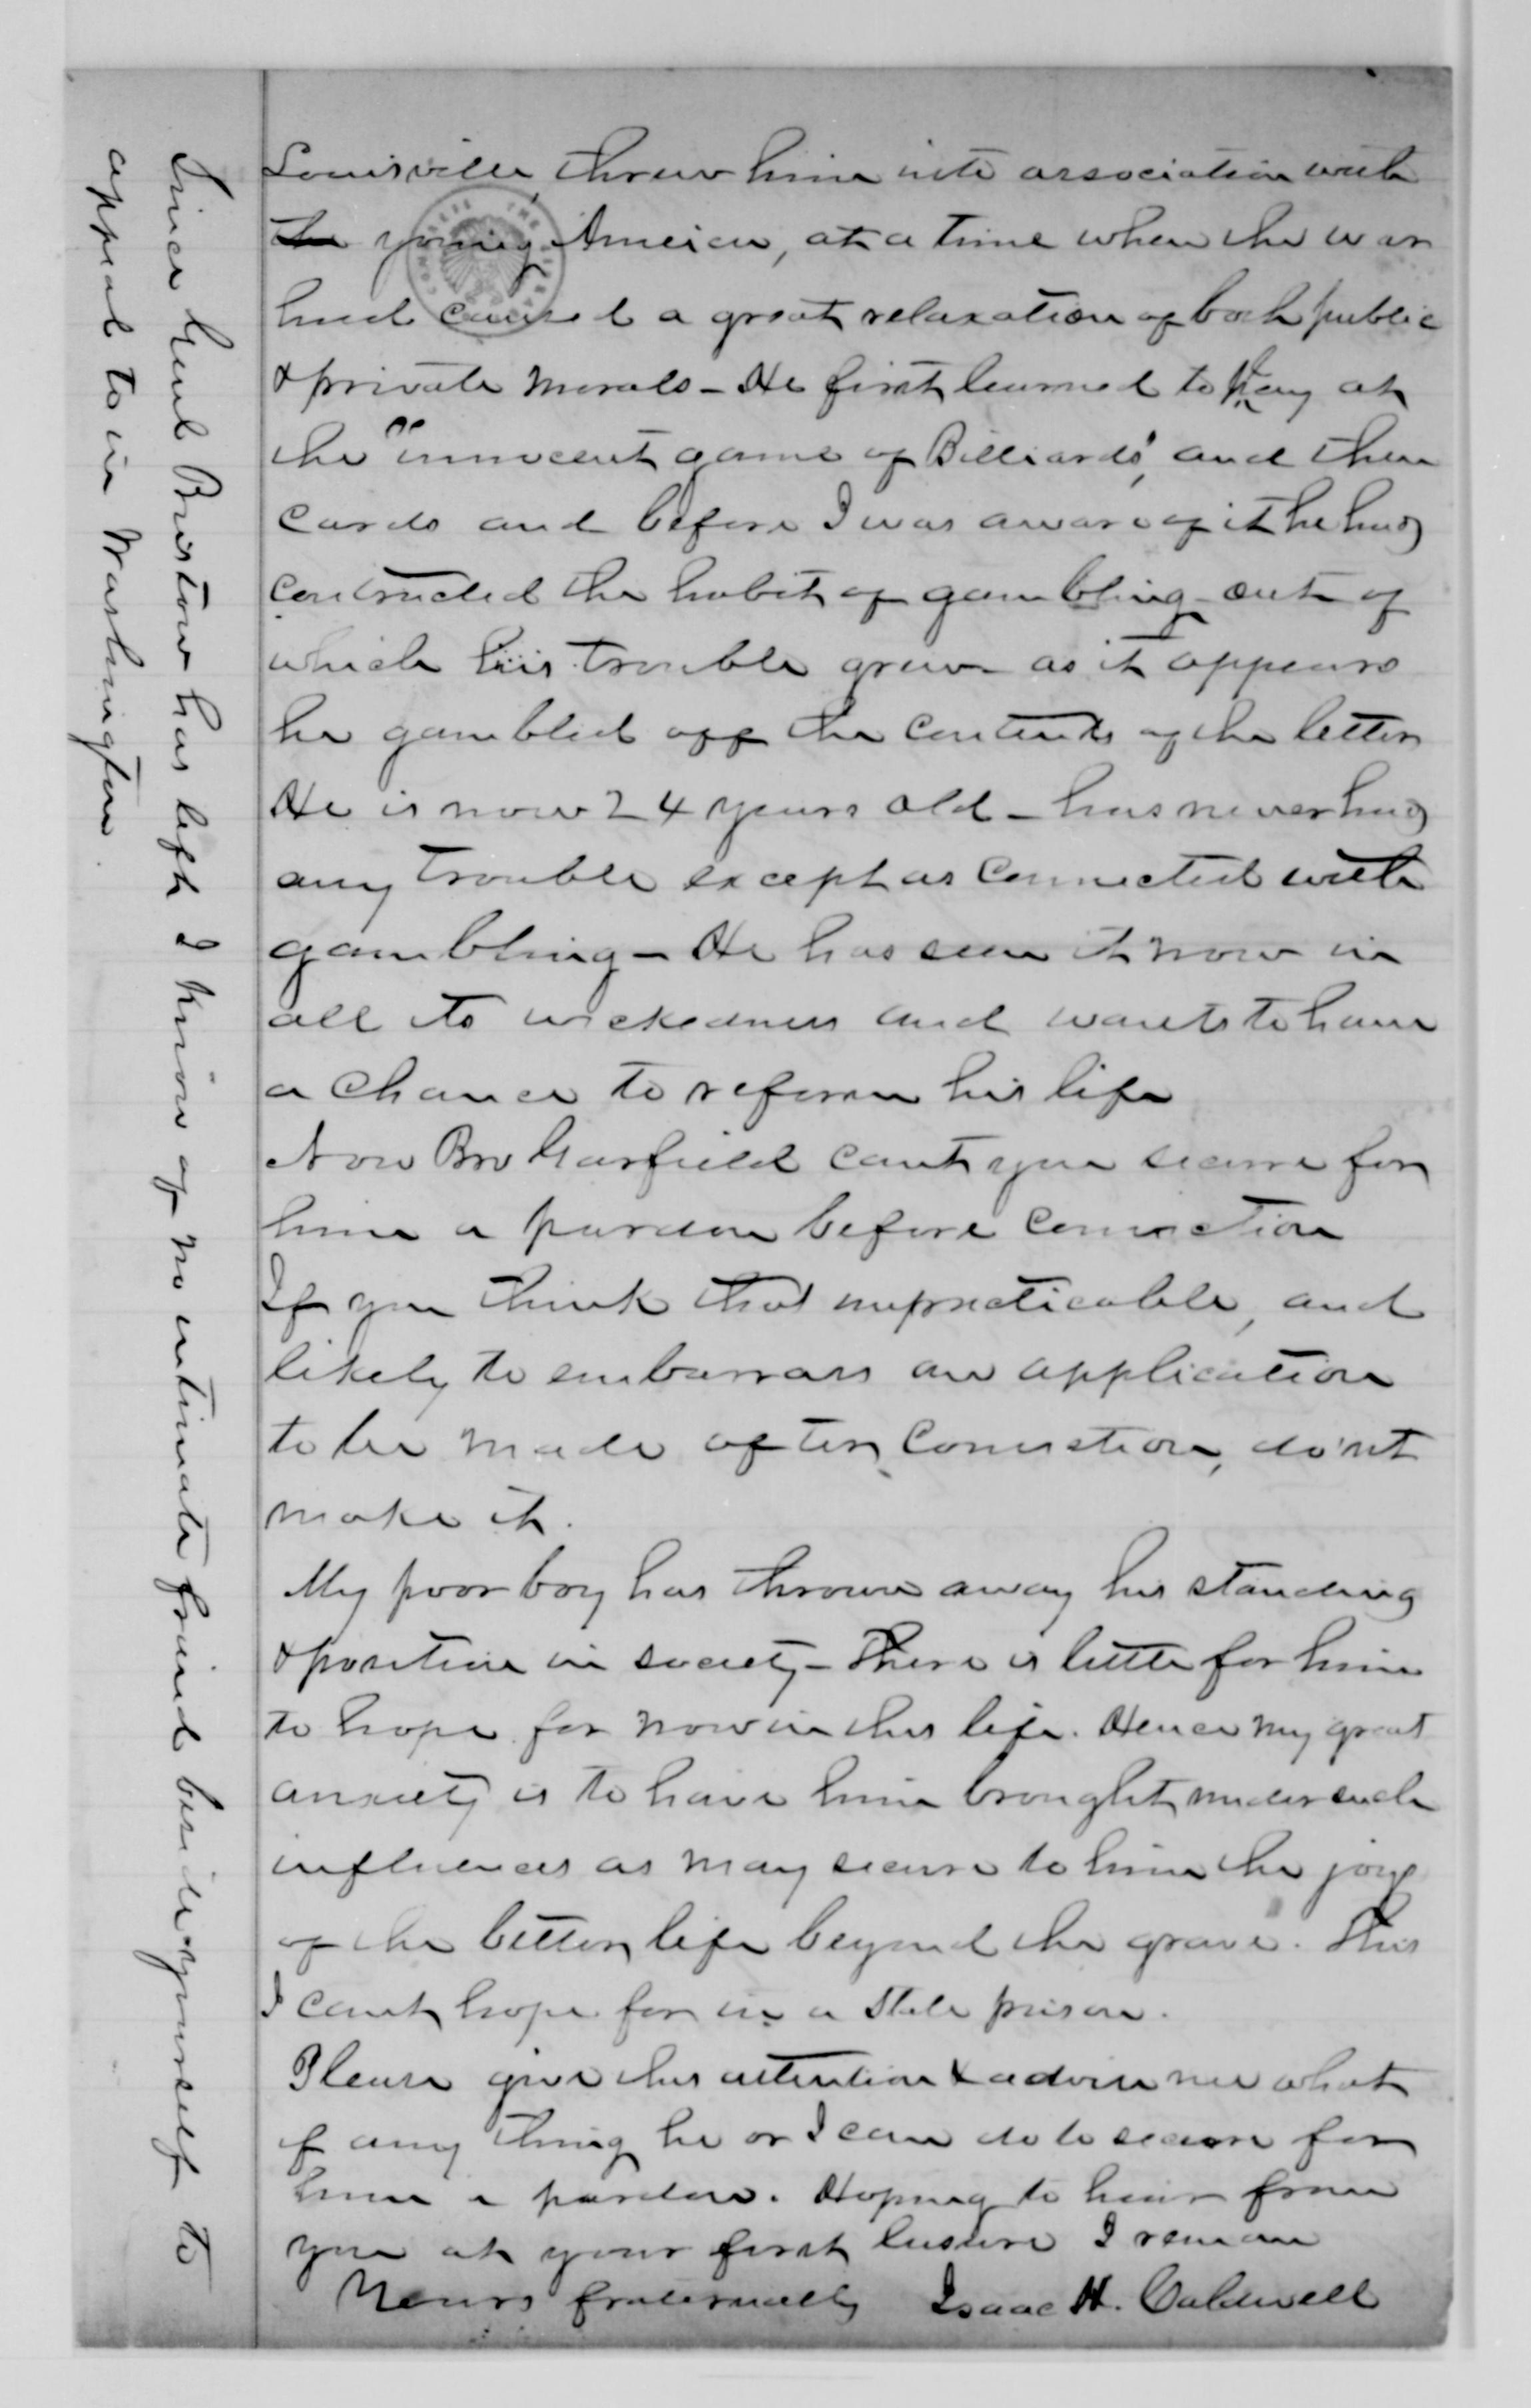 Louisville, threw him into association with
the young America, at a time when the war
had caused a great relaxation of both public
& private morals - He first learned to play at
the "innocent game of Billiards", and then
cards and before I was aware of it he had
contracted the habit of gambling out of
which his trouble grew as it appears
he gambled off the contents of the letter
He is now 24 years old - has never had
any trouble except as connected with
gambling - He has seen it now in
all its wickedness and wants to have
a chance to reform his life
Now Bro Garfield cant you secure for
him a pardon before conviction
If you think that impracticable, and
likely to embarrass an application
to be made after conviction, do'nt
make it.
My poor boy has thrown away his standing
& position in society - There is little for him
to hope for now in this life. Hence my great
anxiety is to have him brought under such
influences as may secure to him the joys
of the better life beyond the grave. This
I cant hope for in a State prison.
Please give this attention & advise me what
if any thing he or I can do to secure for
him a pardon. Hoping to hear from
you at your first leisure I remain
Yours fraternally Isaac H. Caldwell
Since Genl Bristow has left I know of no intimate friend beside yourself to
appeal to in Washington.